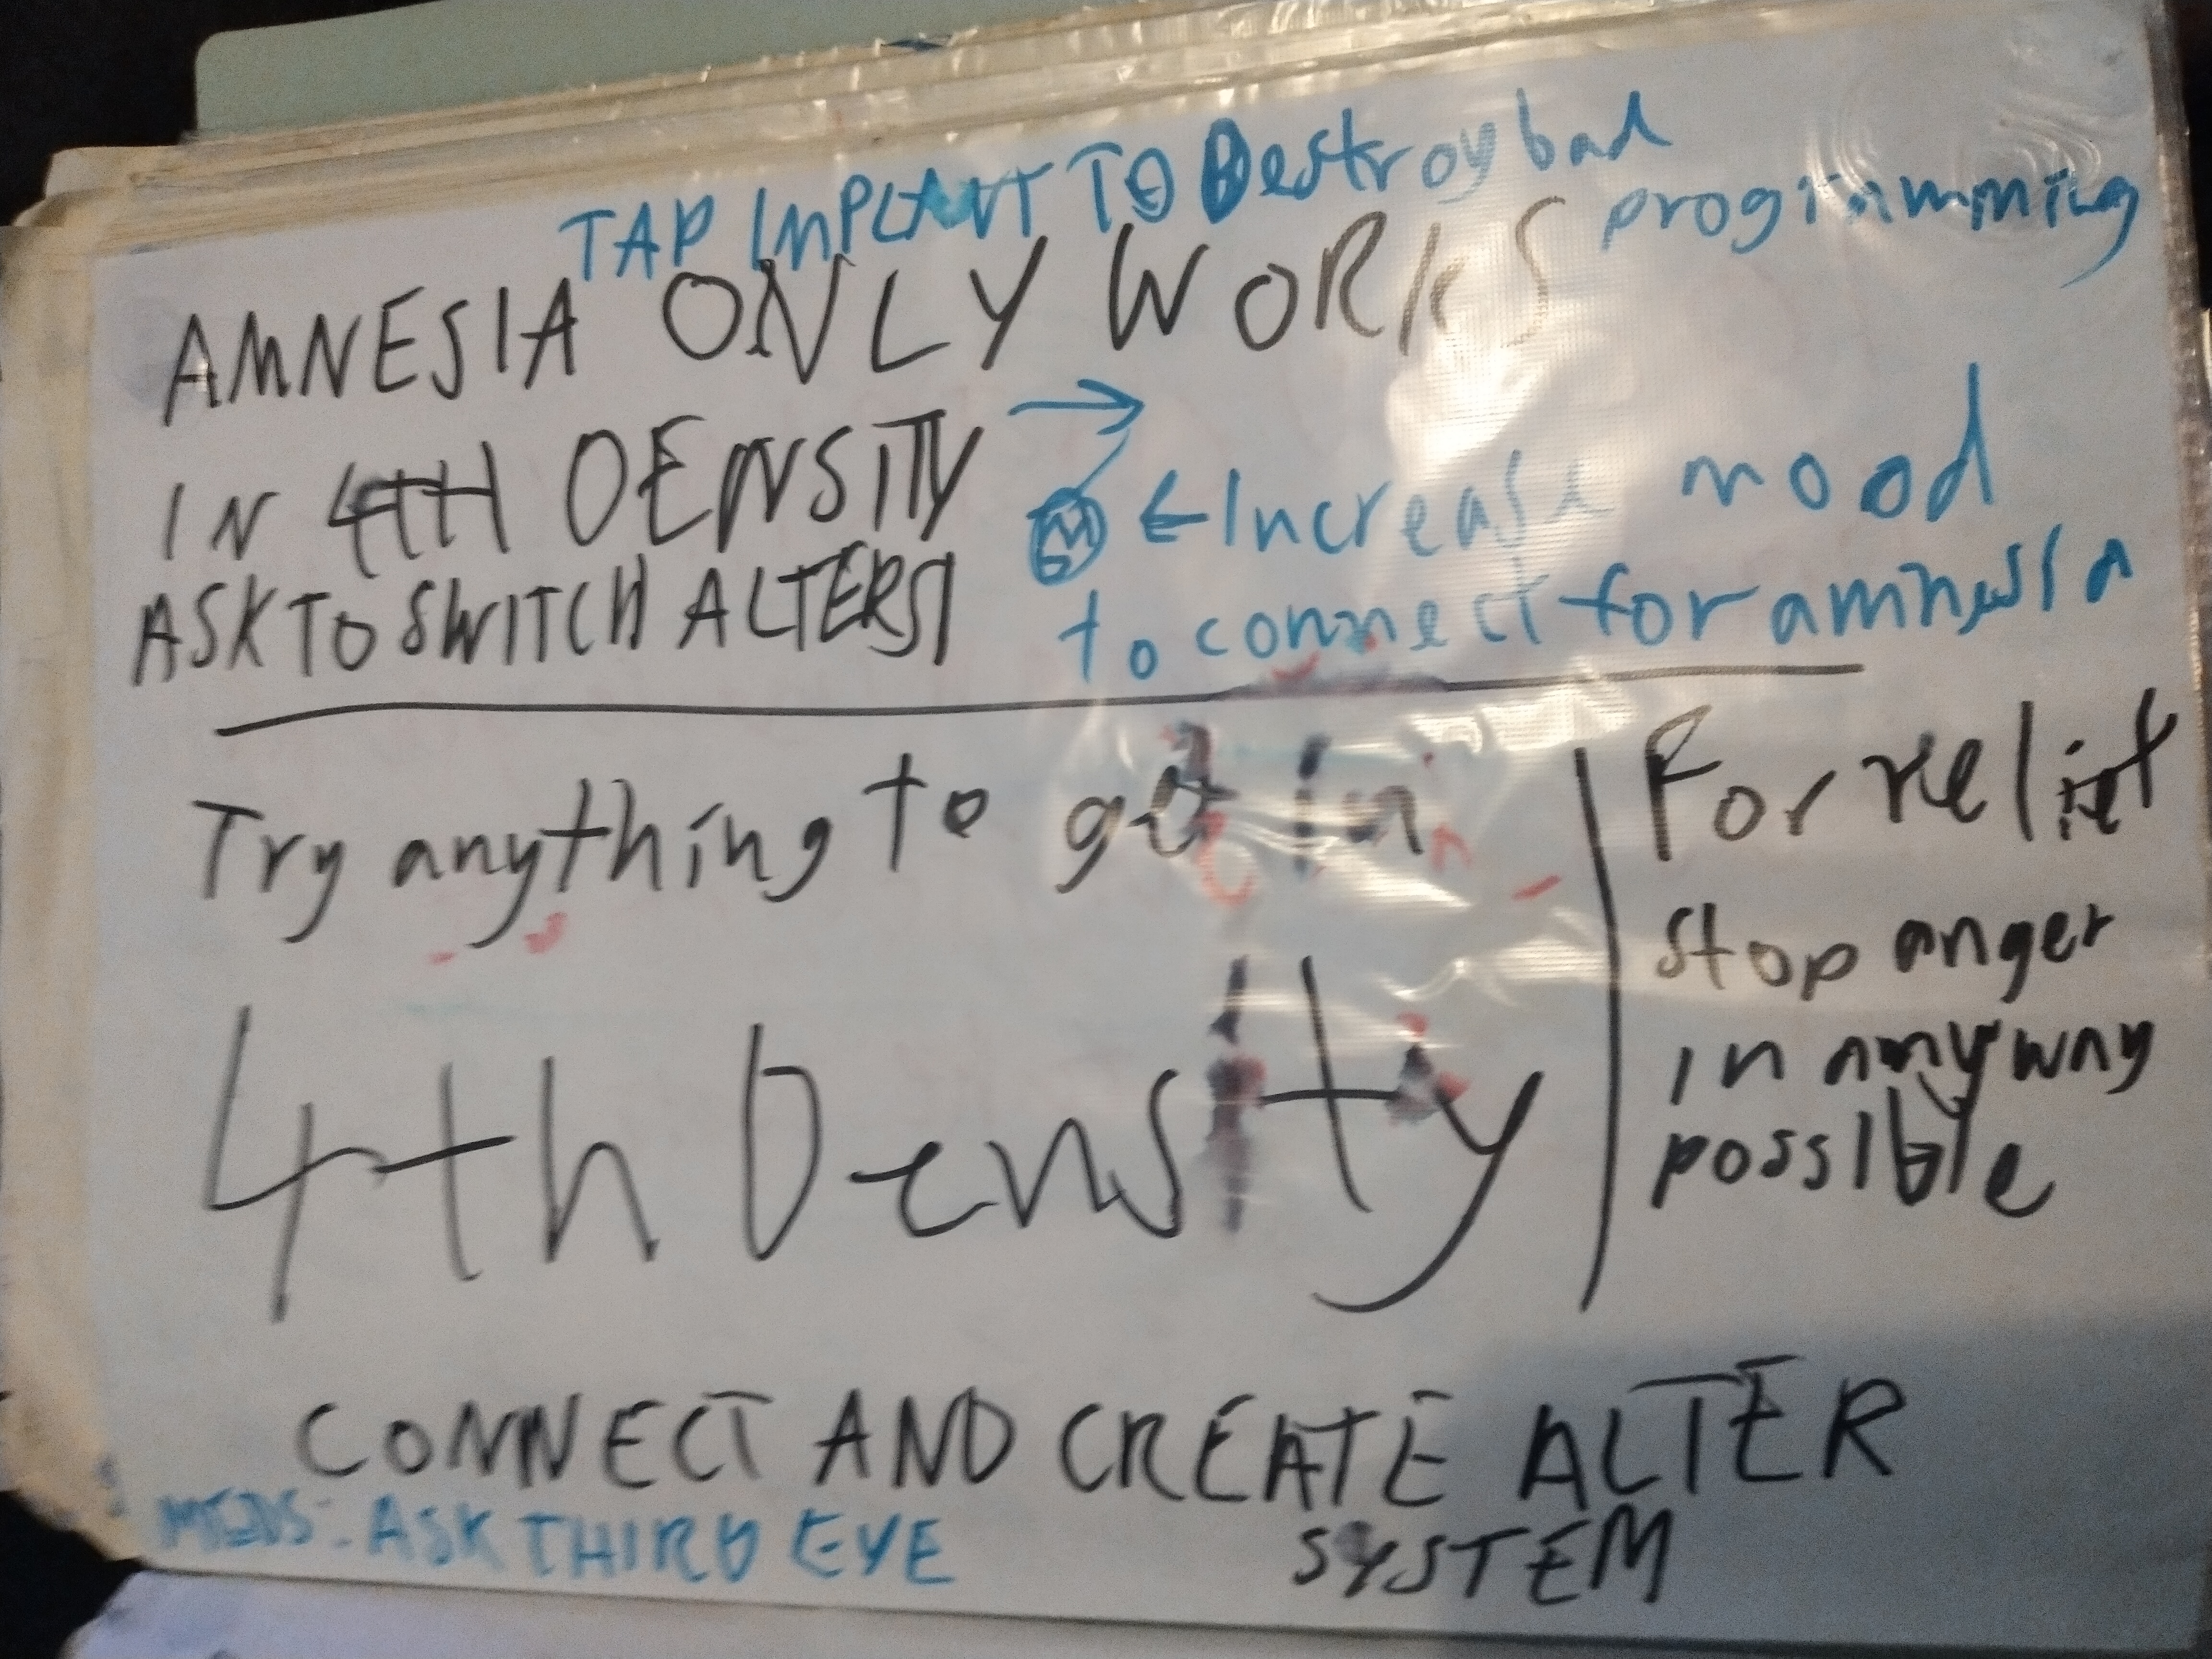 TAP IMPLANT TO Destroy bad
programming
AMNESIA ONLY WORKS
IN 4TH DENSITY →
ASK TO SWITCH ALTERS
← Increase mood
to connect for amnesia
Try anything to get in
4th Density
For relief
stop anger
in anyway
possible
CONNECT AND CREATE ALTER
SYSTEM
MEDS: ASK THIRD EYE